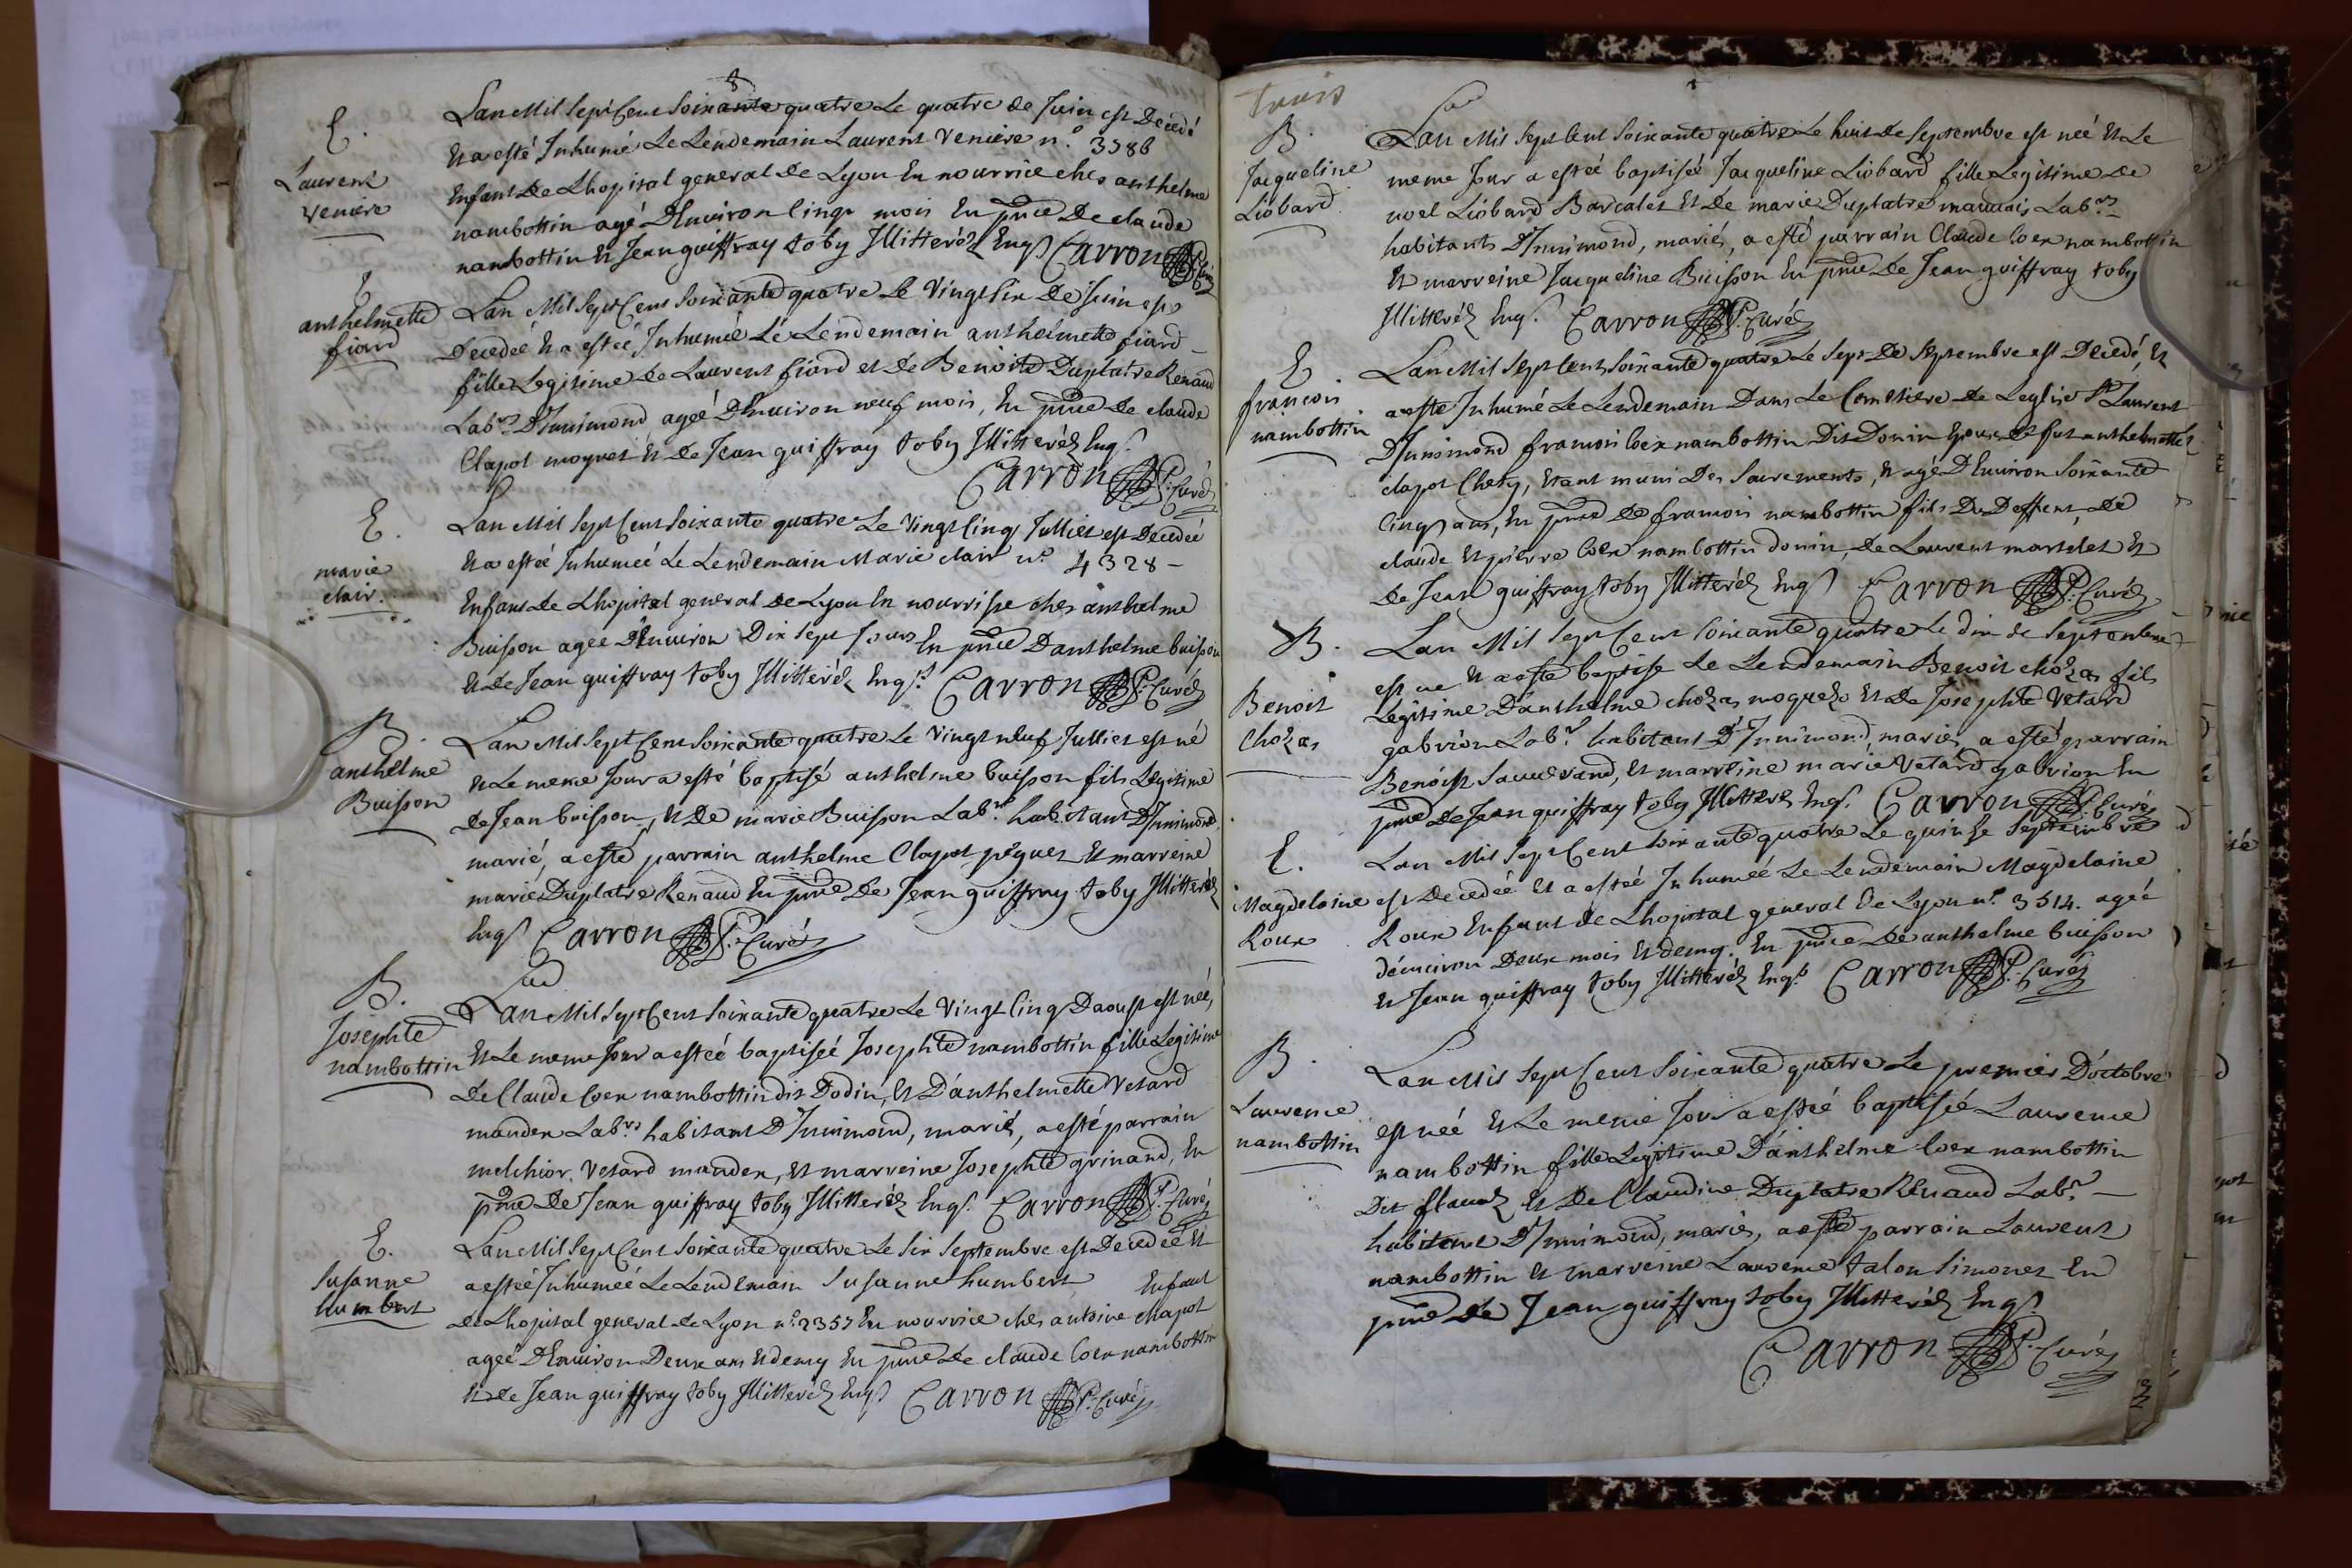 E.
Laurent
Veniere
Lan Mil Sept Cent Soixante quatre Le quatre de Juin est Decedé
Et a esté Inhumé Le Lendemain Laurent Veniere n.o 3386
Enfant De Lhopital general de Lyon En nourrice ches anthelme
nambottin agé DEnviron Cinq mois En pnce De claude
nambottin Et Jean guiffray toby Illitteréz Enqs Carron Curé
E
anthelmette
fiard
Lan Mil Sept Cent Soixante quatre Le Vingt Six De Juin est
Decedeé Et a esteé Inhumeé Le Lendemain anthelmette fiard
fille Legitime de Laurent fiard et de Benoite Duplatre Renaud
Labrs D'Innimond ageé DEnviron neuf mois, En pnce de claude
Clapot moquet Et de Jean guiffray toby Illitteréz Enqs
Carron P. Curé
E.
marie
clair.
Lan Mil Sept Cent Soixante quatre Le Vingt Cinq Julliet est Decedeé
Et a esteé Inhumeé Le Lendemain Marie clair n.o 4328 -
Enfant De Lhopital general de Lyon En nourrisse ches anthelme
Buisson agee DEnviron Dix Sept Jours En pnce Danthelme buisson
Et De Jean guiffray toby Illitteréz Enqs. Carron P. Curé
B.
anthelme
Buisson
Lan Mil Sept Cent Soixante quatre Le Vingt neuf Julliet est né
Et Le meme Jour a esté baptisé anthelme buisson fils Legitime
de Jean buisson, Et De marie Buisson Labrs habitant D'Innimond,
marié, a esté parrain anthelme Clapot pequet Et marreine
marie Duplatre Renaud En pnce De Jean guiffray toby Illitteréz
Enqs Carron P. Curé
B.
Josephte
nambottin
Lan Mil Sept Cent Soixante quatre Le Vingt Cinq Daoust est neé,
Et Le meme Jour a esteé baptiseé Josephte nambottin fille Legitime
de Claude Coex nambottin dit Dodin, Et D'anthelmette Vetard
mandex Labrs habitant D'Innimond, mariés, a esté parrain
melchior Vetard mandex, Et marreine Josephte grinand, En
pnce De Jean guiffray toby Illitteréz Enqs. Carron P. Curé
E.
Susanne
humbert
Lan Mil Sept Cent Soixante quatre Le Six Septembre est Decedeé Et
a esteé Inhumeé Le Lendemain Susanne humbert Enfant
de Lhopital general de Lyon n.o 2357 En nourrice ches antoine chapot
ageé DEnviron Deux ans Et demy En pnce de claude Coex nambottin
Et de Jean guiffray toby Illitteréz Enqs Carron P. Curé
trois
B.
Jacqueline
Liobard
Lan Mil Sept Cent Soixante quatre Le huit de Septembre est neé Et Le
meme Jour a esteé baptiseé Jacqueline Liobard fille Legitime de
noel Liobard Barcalet Et De marie Duplatre mauvais Labrs
habitants D'Innimond, mariés, a esté parrain Claude Coex nambottin
Et marreine Jacqueline Buisson En pnce De Jean guiffray toby
Illitteréz Enqs. Carron P. Curé
E
francois
nambottin
Lan Mil Sept Cent Soixante quatre Le Sept De Septembre est Decedé, Et
a esté Inhumé Le Lendemain Dans Le Cemetiere de Leglise St Laurent
D'Innimond francois Coex nambottin Dit Donin Epoux De fut anthelmette
clapot Chety, Etant muni Des Sacrements, Et agé DEnviron Soixante
Cinq ans, En pnce De francois nambottin fils Du Deffunt, de
claude Et pierre Coex nambottin donin, de Laurent martelet Et
De Jean guiffray toby Illitteréz Enqs Carron P. Curé
B.
Benoit
Chozas
Lan Mil Sept Cent Soixante quatre Le dix de Septembre
est ne Et a esté baptise Le Lendemain Benoit chozas fils
Legitime D'anthelme chozas noquet Et de Josephte Vetard
gabrion Labrs. habitant D'Innimond, mariés, a esté parrain
Benoist Sauverand, Et marreine marie Vetard gabrion En
pnce de Jean guiffray toby Illitteréz Enqs. Carron P. Curé
E.
Magdelaine
Roux
Lan Mil Sept Cent Soixante quatre Le quinze Septembre
est Decedeé Et a esteé Inhumeé Le Lendemain Magdelaine
Roux Enfant de Lhopital general de Lyon n.o 3514. ageé
d'environ Deux mois Et demy. En pnce De anthelme buisson
Et Jean guiffray toby Illitteréz Enqs. Carron P. Curé
B.
Laurence
nambottin
Lan Mil Sept Cent Soixante quatre Le premier D'octobre
est neé Et Le meme Jour a esteé baptiseé Laurence
nambottin fille Legitime D'anthelme Coex nambottin
Dit Et De Claudine Duplatre Renaud Labrs -
habitant D'Innimond, mariés, a esté parrain Laurent
nambottin Et marreine Laurence talon Simonet En
pnce de Jean guiffray toby Illitteréz Enqs.
Carron P. Curé